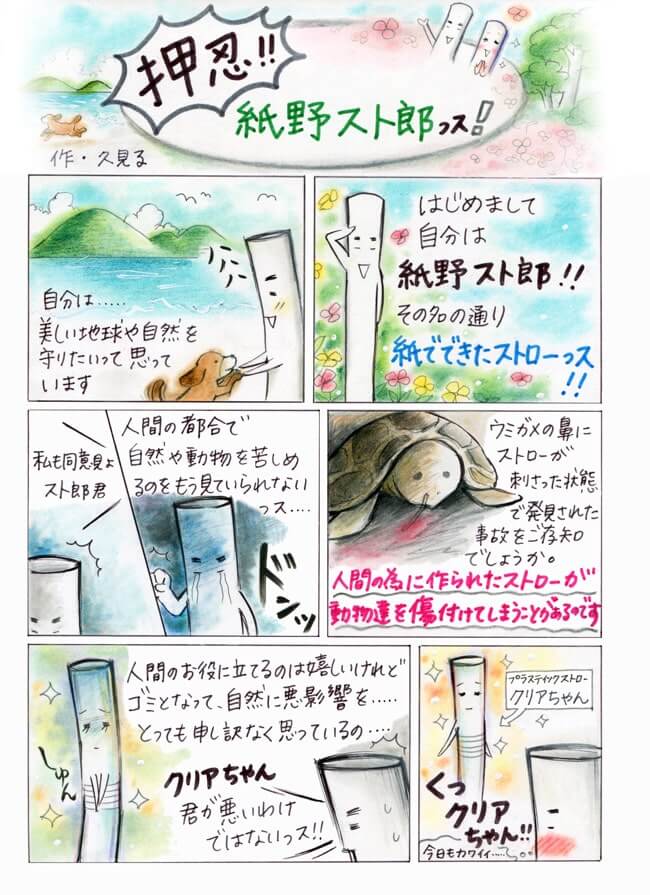 押忍!!
紙野スト郎っス!
作・久見る
はじめまして
自分は
紙野スト郎!!
その名の通り
紙でできたストローっス
!!
自分は……
美しい地球や自然を
守りたいって思って
います
ウミガメの鼻に
ストローが
刺さった状態
で発見された
事故をご存知
でしょうか。
人間の為に作られたストローが
動物達を傷付けてしまうことがあるのです
人間の都合で
自然や動物を苦しめ
るのをもう見ていられない
っス....
ドンッ
私も同意見よ
スト郎君
プラスティックストロー
クリアちゃん
くっ
クリア
ちゃん!!
今日もカワイイ.....
人間のお役に立てるのは嬉しいけれど
ゴミとなって、自然に悪影響を.....
とっても申し訳なく思っているの....
しゅん
クリアちゃん
君が悪いわけ
ではないっス!!